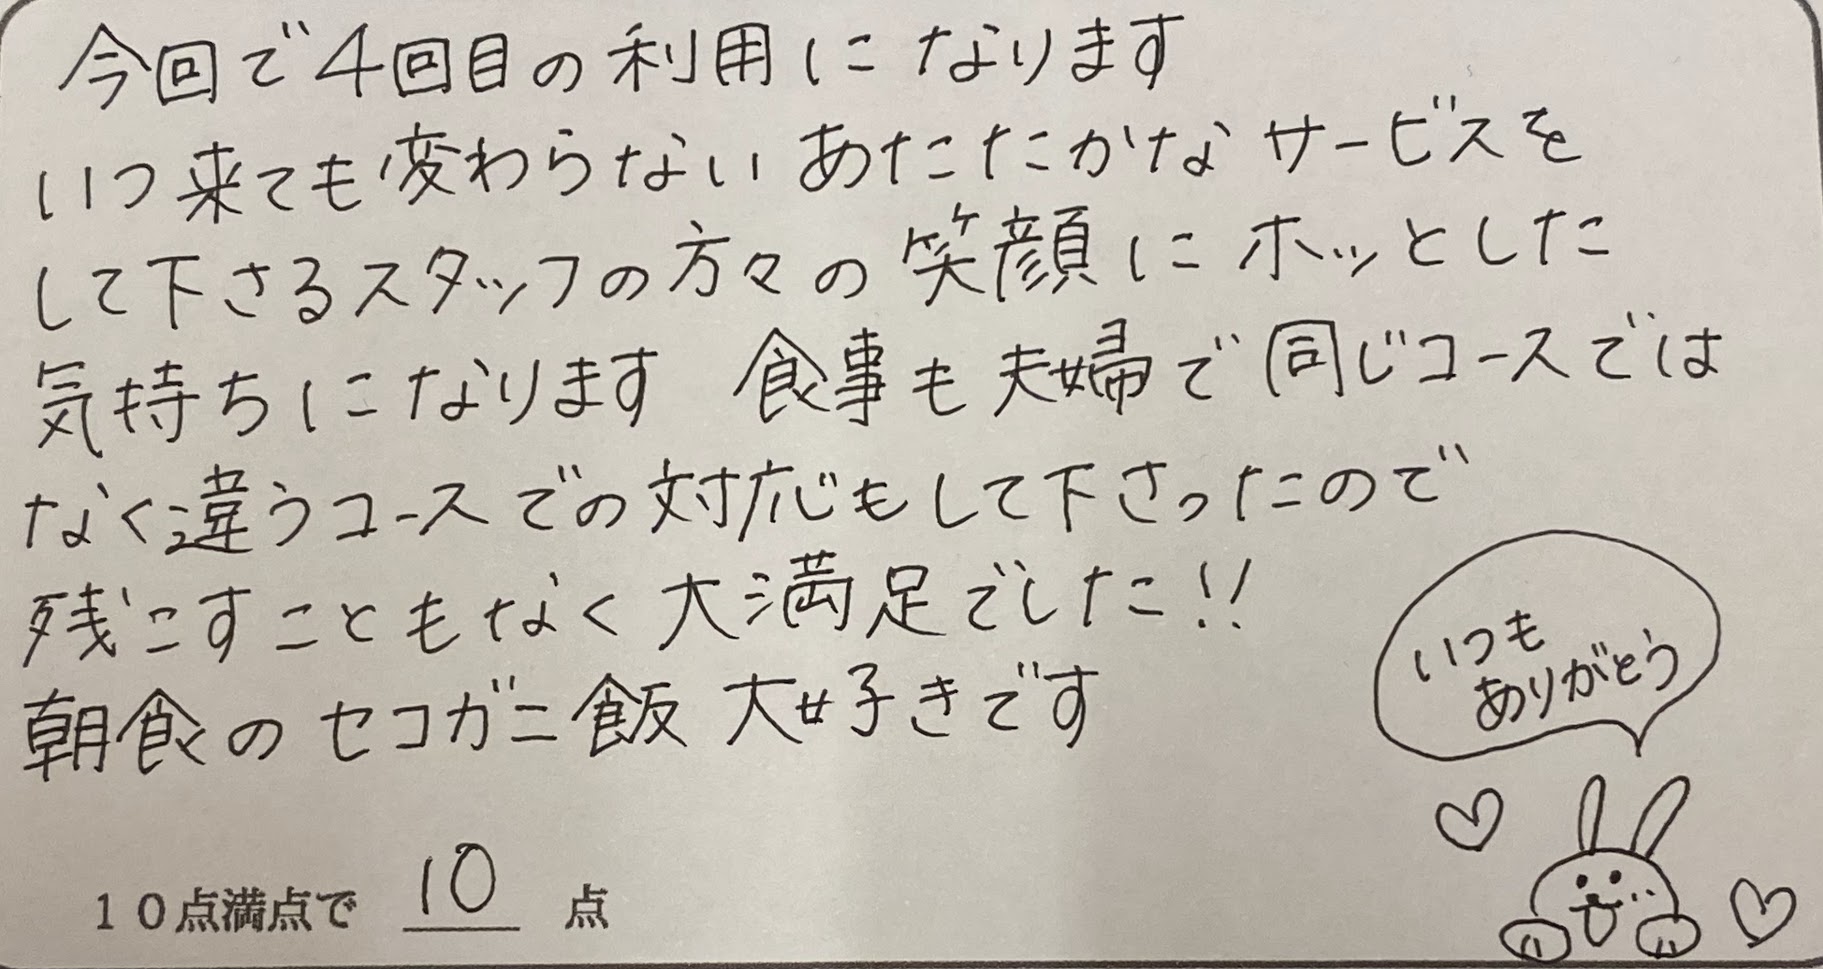 今回で4回目の利用になります
いつ来ても変わらないあたたかなサービスを
して下さるスタッフの方々の笑顔にホッとした
気持ちになります 食事も夫婦で同じコースでは
なく違うコースでの対応もして下さったので
残こすこともなく大満足でした!!
朝食のセコガニ飯 大好きです
いつも
ありがとう
10点満点で 10 点